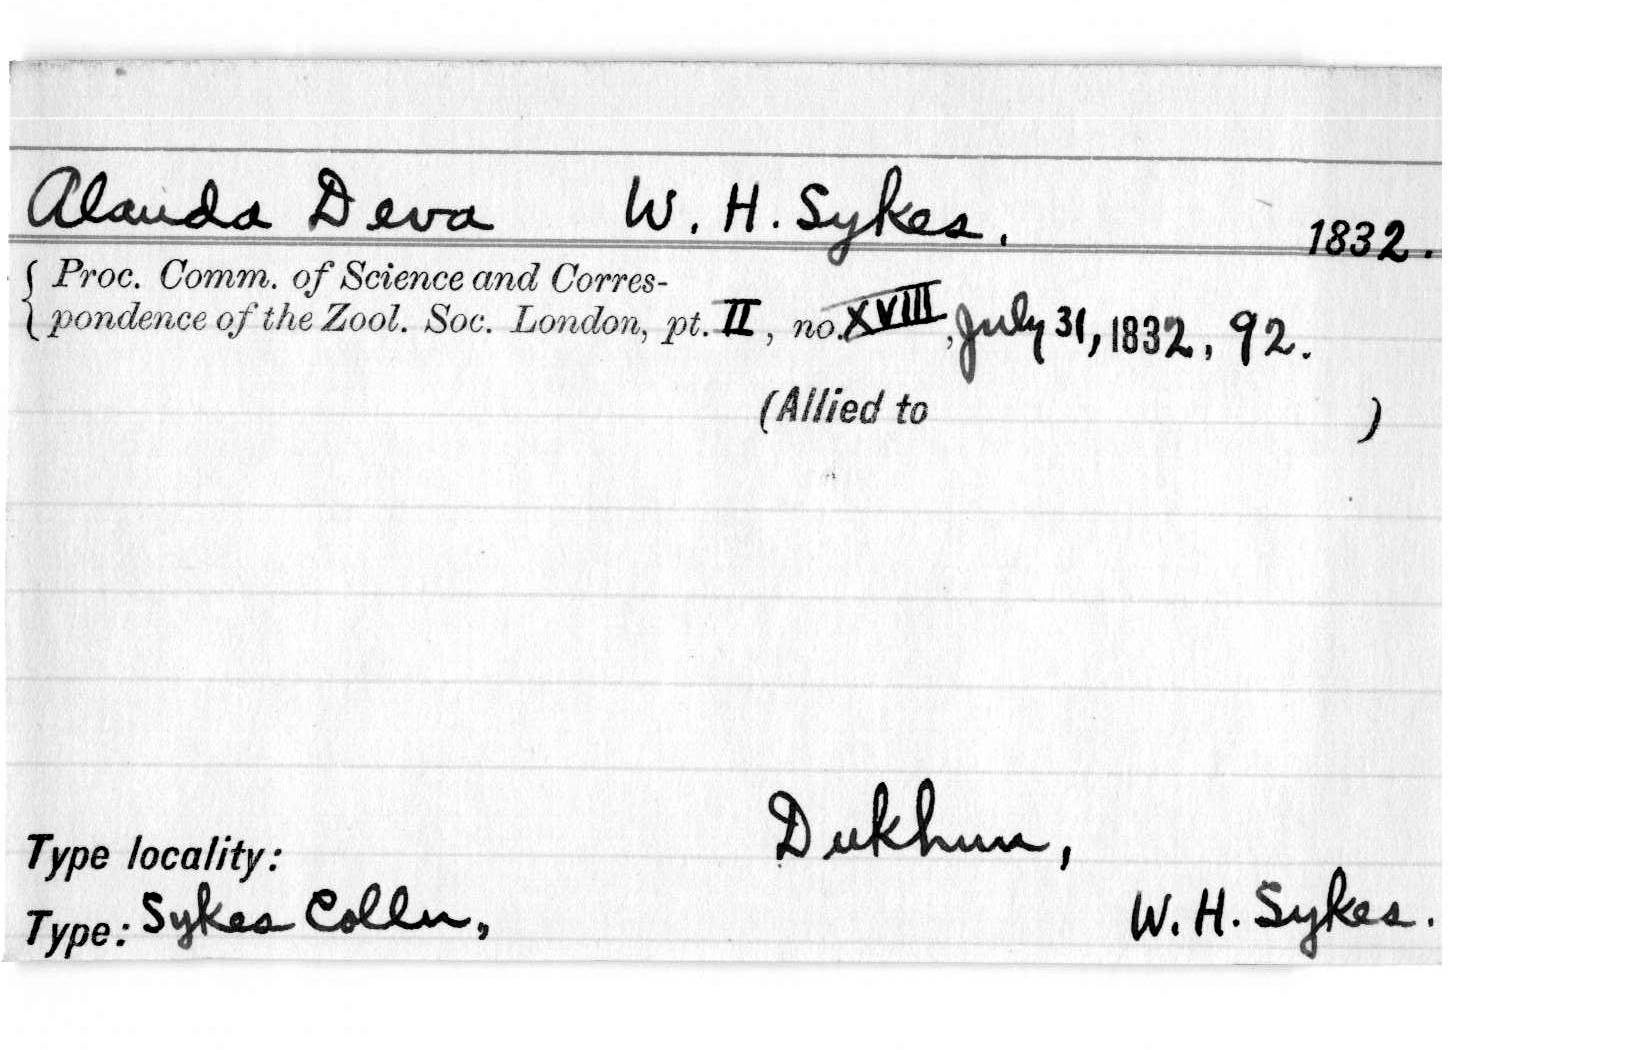 Alauda Deva W. H. Sykes. 1832.
Proc. Comm. of Science and Corres-
pondence of the Zool. Soc. London, pt. II, no. XVIII, July 31, 1832, 92.
(Allied to )
Dukhun,
Type locality:
Type: Sykes Colln, W. H. Sykes.